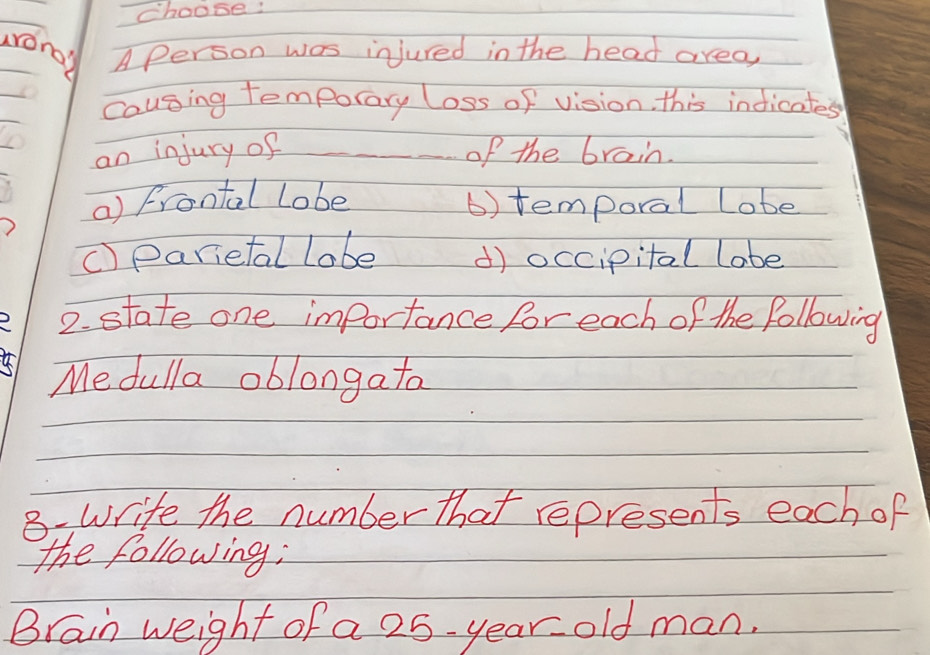 choose:
wrong?
A Person was injured in the head area,
causing temporary loss of vision. this indicates
an injury of ________ of the brain.
a) Frontal Lobe b) temporal Lobe
c) Parietal lobe d) occipital lobe
2. state one importance for each of the following
Medulla oblongata
3- Write the number that represents each of
the following:
Brain weight of a 25-year-old man.